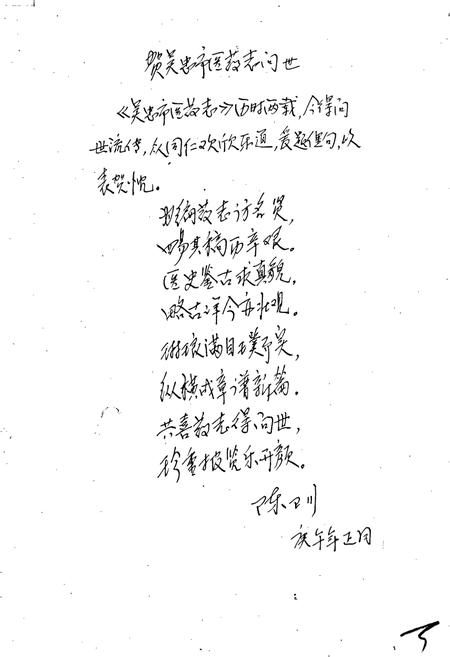 贺吴忠市医药志问世
《吴忠市医药志》历时两载,今得问
世流传,众同仁欢欣乐道,爰题俚句,以
表贺忱。
编药志访名贤,
四易其稿历辛艰。
医史鉴古求真貌,
略古详今亦壮观。
满目璞予实,
纵横成章谱新篇。
共喜药志得问世,
珍重披览乐开颜。
陈卫川
庚午年正月